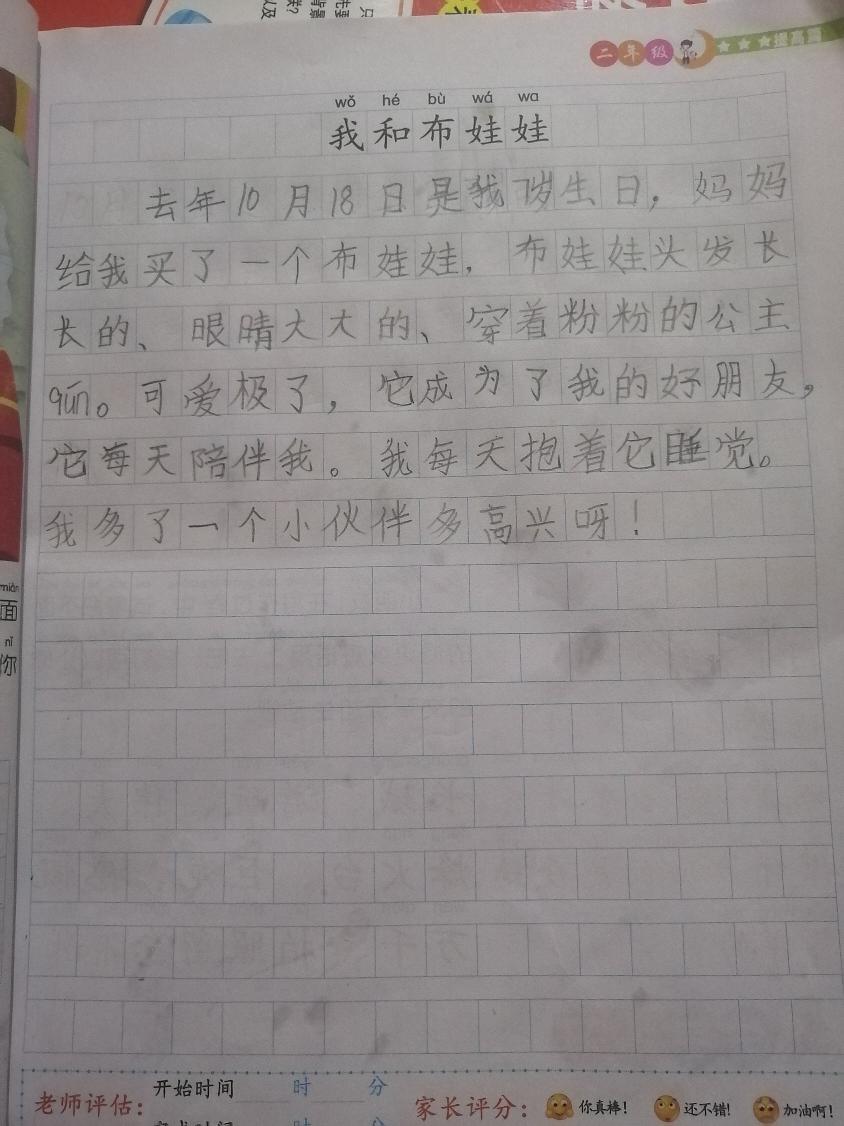 二年级
提高篇
wǒ hé bù wá wa
我和布娃娃
去年10月18日是我7岁生日，妈妈
给我买了一个布娃娃，布娃娃头发长
长的、眼睛大大的、穿着粉粉的公主
qún。可爱极了，它成为了我的好朋友，
它每天陪伴我。我每天抱着它睡觉。
我多了一个小伙伴多高兴呀！
miàn
面
nǐ
你
开始时间 时 分
老师评估：
家长评分： 你真棒！ 还不错! 加油啊！